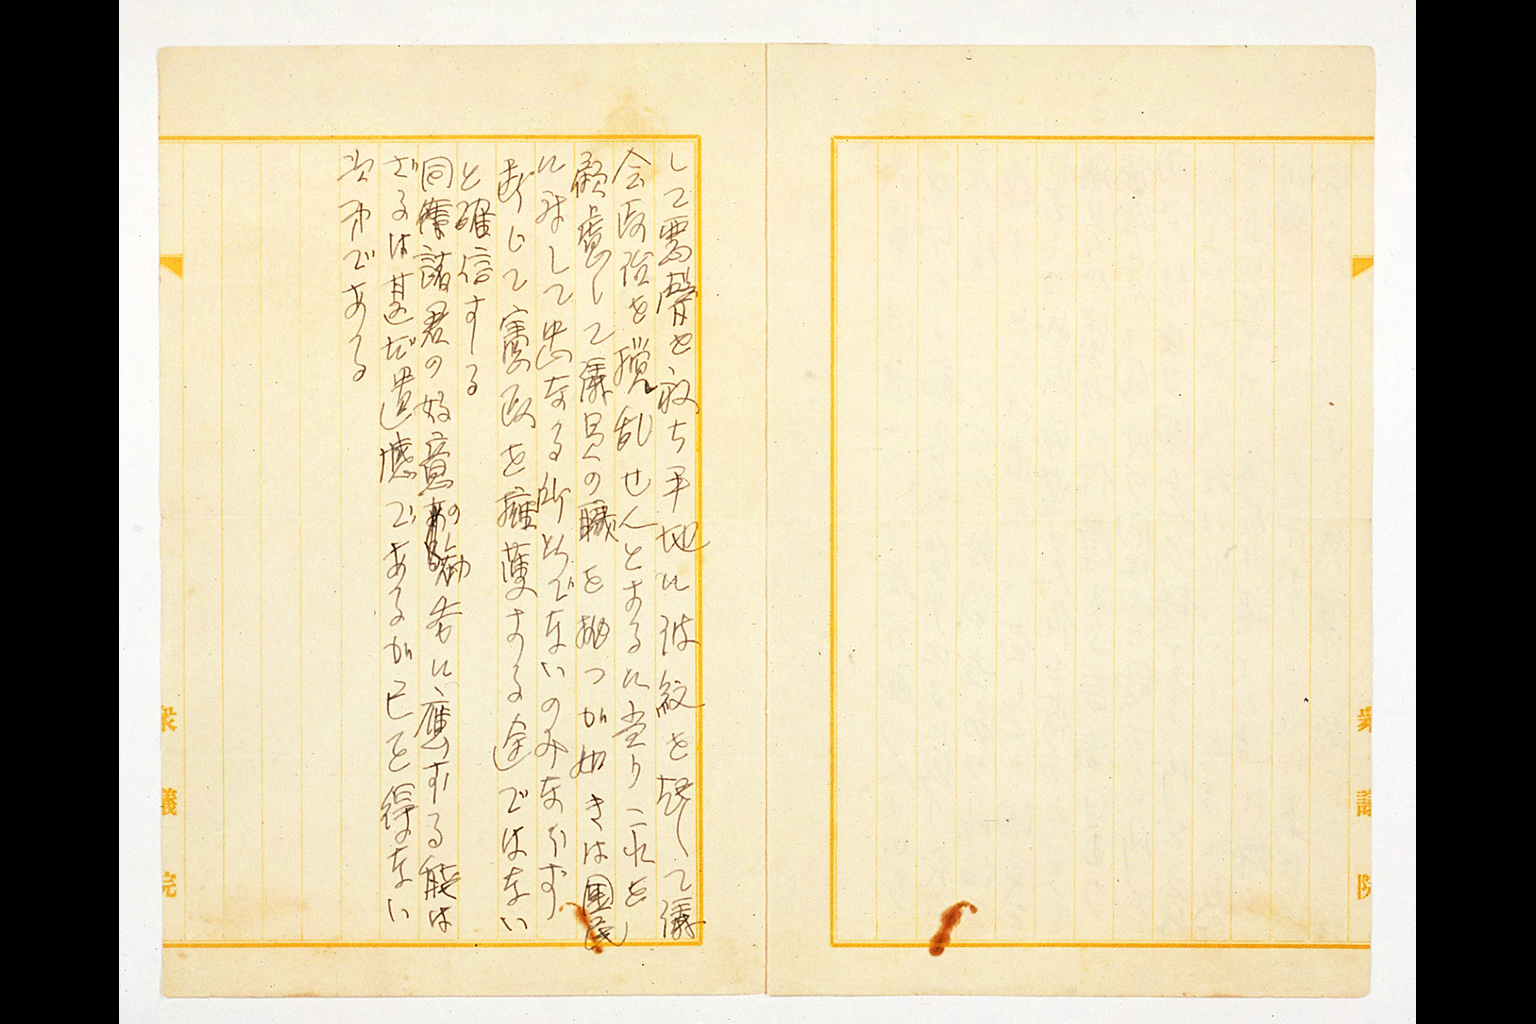 して罵声を放ち平地に波紋を起して議
会政治を攪乱せんとするに当りこれを
顧慮して議員の職を拋つが如きは國民
に対して忠なる所以でないのみならず
断じて憲政を擁護する途ではない
と確信する
同僚諸君の好意の勧告に應ずる能は
ざるは甚だ遺憾であるが已を得ない
次第である
衆議院
衆議院